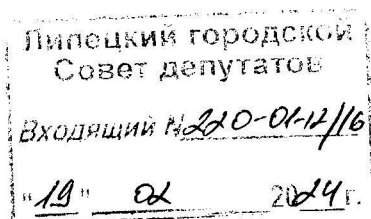 Липецкий городской
Совет депутатов
Входящий № 220-01-12/16
"19" 02 2024 г.